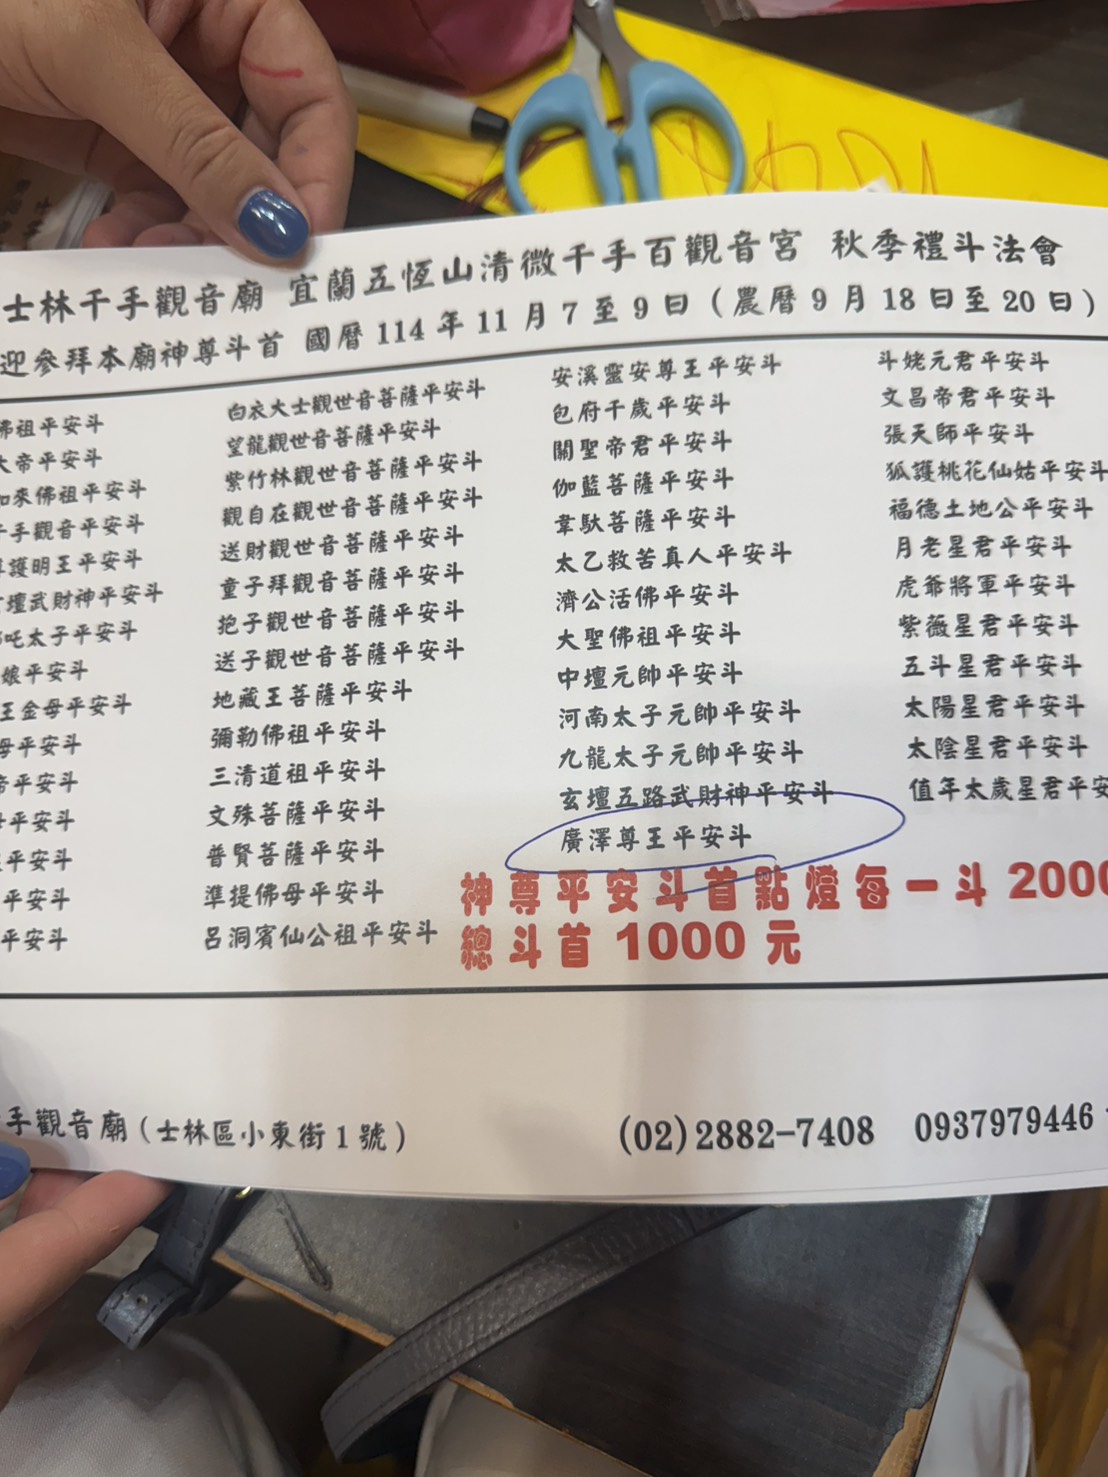 士林千手觀音廟 宜蘭五恆山清微千手百觀音宮 秋季禮斗法會
迎參拜本廟神尊斗首 國曆114年11月7至9日(農曆9月18日至20日)
佛祖平安斗
大帝平安斗
如來佛祖平安斗
千手觀音平安斗
護明王平安斗
壇武財神平安斗
吒太子平安斗
娘平安斗
王金母平安斗
母平安斗
帝平安斗
平安斗
平安斗
平安斗
平安斗
白衣大士觀世音菩薩平安斗
望龍觀世音菩薩平安斗
紫竹林觀世音菩薩平安斗
觀自在觀世音菩薩平安斗
送財觀世音菩薩平安斗
童子拜觀音菩薩平安斗
抱子觀世音菩薩平安斗
送子觀世音菩薩平安斗
地藏王菩薩平安斗
彌勒佛祖平安斗
三清道祖平安斗
文殊菩薩平安斗
普賢菩薩平安斗
準提佛母平安斗
呂洞賓仙公祖平安斗
安溪靈安尊王平安斗
包府千歲平安斗
關聖帝君平安斗
伽藍菩薩平安斗
韋馱菩薩平安斗
太乙救苦真人平安斗
濟公活佛平安斗
大聖佛祖平安斗
中壇元帥平安斗
河南太子元帥平安斗
九龍太子元帥平安斗
玄壇五路武財神平安斗
廣澤尊王平安斗
斗姥元君平安斗
文昌帝君平安斗
張天師平安斗
狐護桃花仙姑平安斗
福德土地公平安斗
月老星君平安斗
虎爺將軍平安斗
紫薇星君平安斗
五斗星君平安斗
太陽星君平安斗
太陰星君平安斗
值年太歲星君平安
神尊平安斗首點燈每一斗 2000
總斗首 1000 元
手觀音廟(士林區小東街1號) (02)2882-7408 0937979446